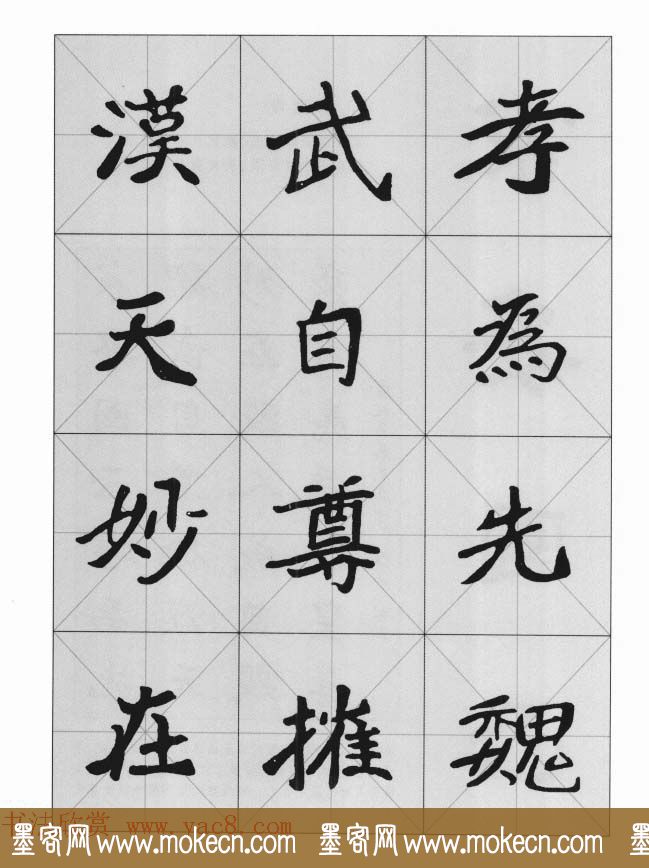 孝為先魏
武自尊
漢天妙在
书法欣赏 www.yac8.com
墨客网 www.mokecn.com 墨客网 www.mokecn.com